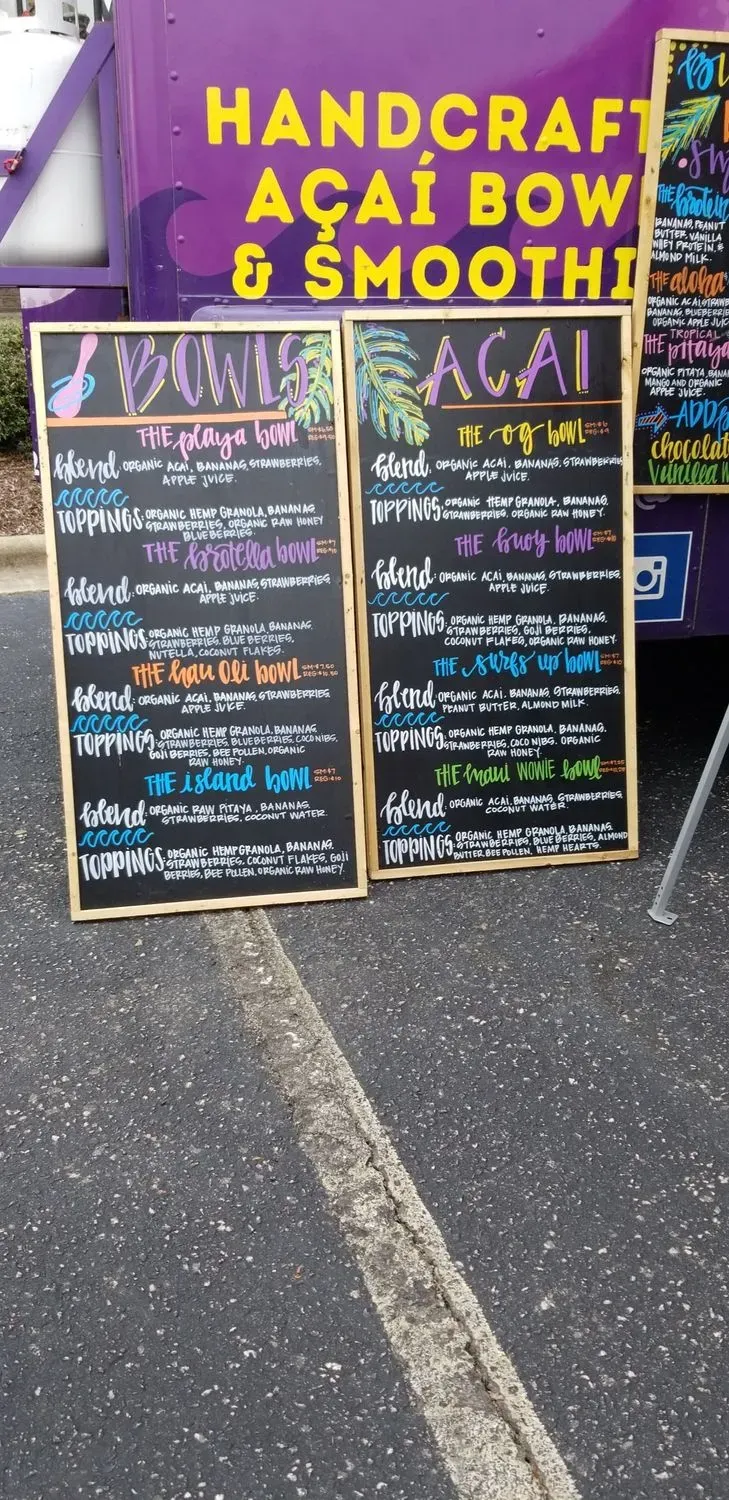 HANDCRAFT
AÇAÍ BOW
& SMOOTHI
BOWLS
THE playa bowl
SM:$6.50
REG:$9.50
blend: ORGANIC ACAI, BANANAS, STRAWBERRIES,
APPLE JUICE.
TOPPINGS: ORGANIC HEMP GRANOLA, BANANAS
STRAWBERRIES, ORGANIC RAW HONEY
BLUEBERRIES.
THE brotella bowl
SM:$7
REG:$10
blend: ORGANIC ACAI, BANANAS, STRAWBERRIES
APPLE JUICE.
TOPPINGS: ORGANIC HEMP GRANOLA, BANANAS
STRAWBERRIES, BLUEBERRIES,
NUTELLA, COCONUT FLAKES.
THE hau oli bowl
SM:$7.50
REG:$10.50
blend: ORGANIC ACAI, BANANAS, STRAWBERRIES
APPLE JUICE.
TOPPINGS: ORGANIC HEMP GRANOLA, BANANAS
STRAWBERRIES, BLUEBERRIES, COCO NIBS,
GOJI BERRIES, BEE POLLEN, ORGANIC
RAW HONEY.
THE island BOWL
SM:$7
REG:$10
blend: ORGANIC RAW PITAYA, BANANAS,
STRAWBERRIES, COCONUT WATER.
TOPPINGS: ORGANIC HEMP GRANOLA, BANANAS,
STRAWBERRIES, COCONUT FLAKES, GOJI
BERRIES, BEE POLLEN, ORGANIC RAW HONEY.
ACAI
THE og BOWL
SM:$6
REG:$9
blend: ORGANIC ACAI, BANANAS, STRAWBERRIES
APPLE JUICE.
TOPPINGS: ORGANIC HEMP GRANOLA, BANANAS,
STRAWBERRIES, ORGANIC RAW HONEY.
THE buoy bowl
SM:$7
REG:$10
blend: ORGANIC ACAI, BANANAS, STRAWBERRIES,
APPLE JUICE.
TOPPINGS: ORGANIC HEMP GRANOLA, BANANAS,
STRAWBERRIES, GOJI BERRIES,
COCONUT FLAKES, ORGANIC RAW HONEY.
THE surfs up bowl
SM:$7
REG:$10
blend: ORGANIC ACAI, BANANAS, STRAWBERRIES,
PEANUT BUTTER, ALMOND MILK.
TOPPINGS: ORGANIC HEMP GRANOLA, BANANAS,
STRAWBERRIES, COCO NIBS, ORGANIC
RAW HONEY.
THE maui WOWIE bowl
blend: ORGANIC ACAI, BANANAS, STRAWBERRIES,
COCONUT WATER.
TOPPINGS: ORGANIC HEMP GRANOLA, BANANAS,
STRAWBERRIES, BLUEBERRIES, ALMOND
BUTTER, BEE POLLEN, HEMP HEARTS.
THE
BANANAS, PEANUT
BUTTER, VANILLA
WHEY PROTEIN, &
ALMOND MILK.
THE aloha
ORGANIC ACAI, STRAWB
BANANAS, BLUEBERRI
ORGANIC APPLE JUIC
TROPICAL
THE pitaya
ORGANIC PITAYA, BANA
MANGO AND ORGANIC
APPLE JUICE
ADD
chocolat
Vanilla W